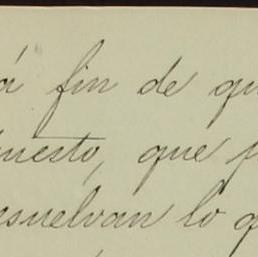 á fin de qu
uesto, que p
esuelvan lo q